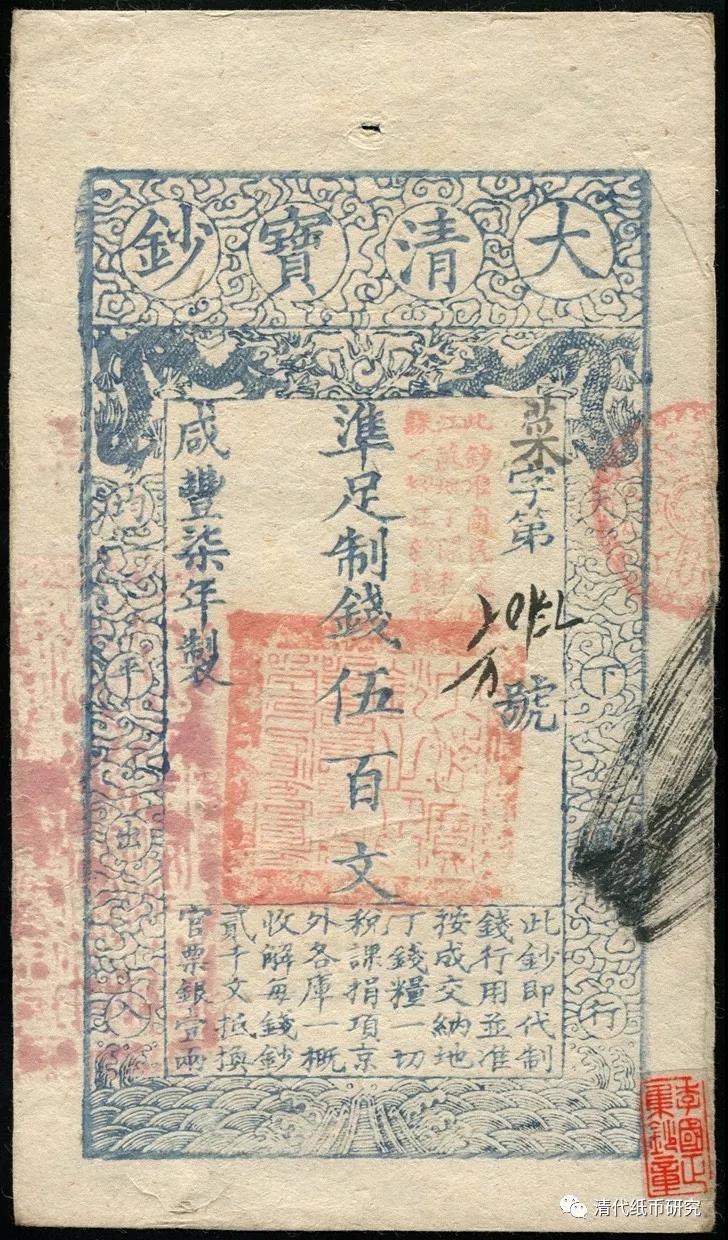 大清寶鈔
菜字第
號
準足制錢伍百文
咸豐柒年製
天下通行
均平出入
此鈔即代制
錢行用並准
按成交納地
丁錢糧一切
稅課捐項京
外各庫一概
收解每錢鈔
貳千文抵換
官票銀壹兩
清代纸币研究